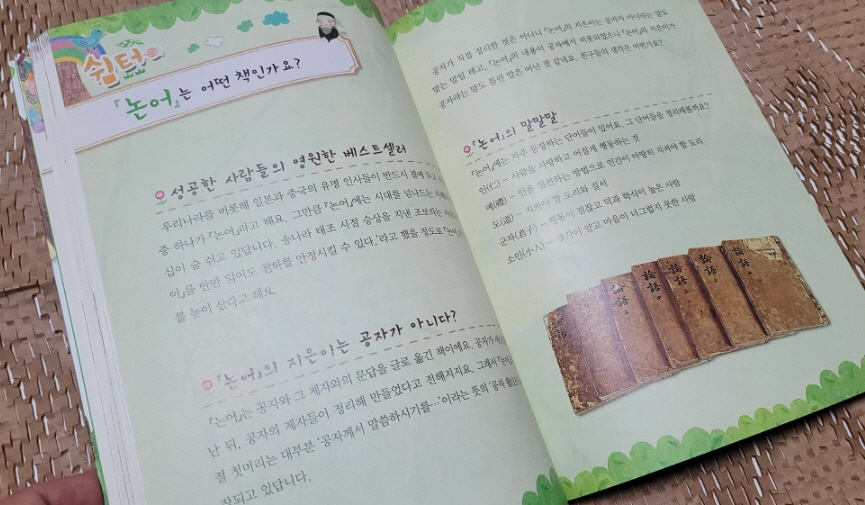 쉼터
『논어』는 어떤 책인가요?
성공한 사람들의 영원한 베스트셀러
우리나라를 비롯해 일본과 중국의 유명 인사들이 반드시 곁에 두고
중 하나가 『논어』라고 해요. 그만큼 『논어』에는 시대를 넘나드는
심이 숨 쉬고 있답니다. 송나라 태조 시절 승상을 지낸 조보라는
어』를 반만 읽어도 천하를 안정시킬 수 있다.'라고 했을 정도로 『논어
를 높이 샀다고 해요.
『논어』의 지은이는 공자가 아니다?
『논어』는 공자와 그 제자와의 문답을 글로 옮긴 책이에요. 공자가
난 뒤, 공자의 제자들이 정리해 만들었다고 전해지지요. 그래서
절 첫머리는 대부분 '공자께서 말씀하시기를…'이라는 뜻의 '공자
작되고 있답니다.
공자가 직접 정리한 것은 아니니 『논어』의 지은이는 공자가 아니라는 말도
맞는 말일 테고, 『논어』의 내용이 공자에서 비롯되었으니 『논어』의 지은이가
공자라는 말도 틀린 말은 아닌 것 같네요. 친구들의 생각은 어떤가요?
『논어』의 말말말
『논어』에는 자주 등장하는 단어들이 있어요. 그 단어들을 정리해볼까요?
인(仁) – 사람을 사랑하고 어질게 행동하는 것
예(禮) – 인을 실천하는 방법으로 인간이 마땅히 지켜야 할 도리
도(道) – 지켜야 할 도리와 질서
군자(君子) – 행동이 점잖고 덕과 학식이 높은 사람
소인(小人) – 생각이 얕고 마음이 너그럽지 못한 사람
論語
論語
論語
論語
論語
論語